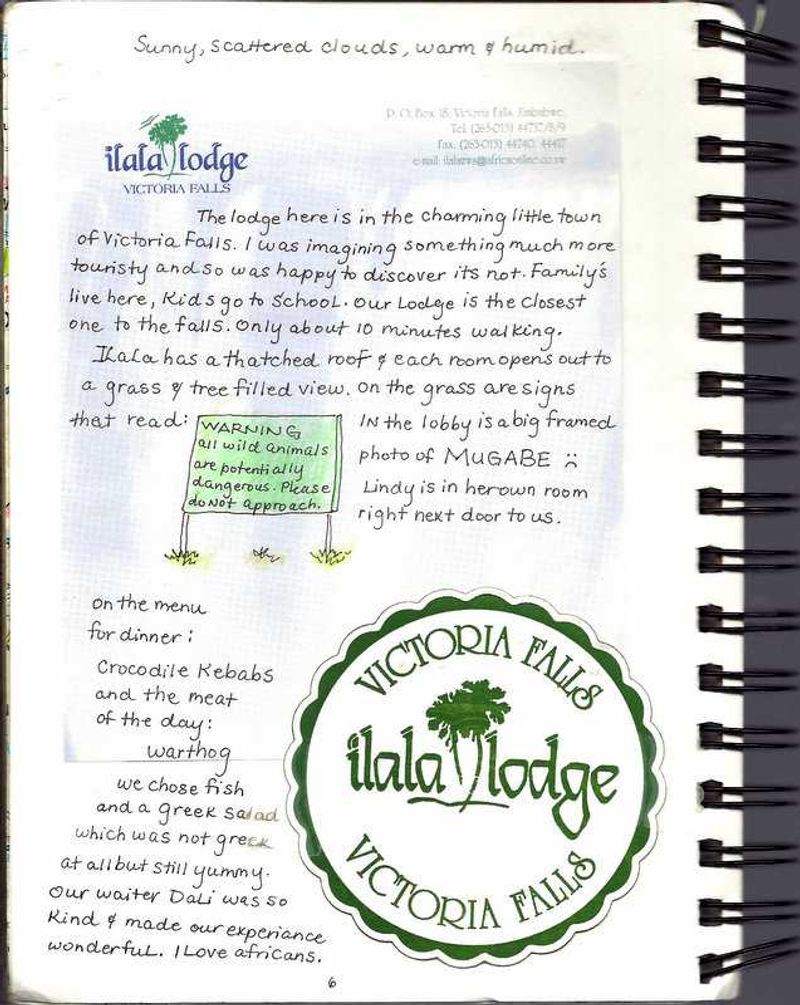 Sunny, scattered clouds, warm & humid.
P. O. Box 18, Victoria Falls, Zimbabwe.
Tel: (263-013) 44737/8/9
Fax: (263-013) 44740, 44417
e-mail:
ilala lodge
VICTORIA FALLS
The lodge here is in the charming little town
of Victoria Falls. I was imagining something much more
touristy and so was happy to discover its not. Family's
live here, Kids go to School. Our Lodge is the closest
one to the falls. Only about 10 minutes walking.
ILaLa has a thatched roof & each room opens out to
a grass & tree filled view. On the grass are signs
that read:
WARNING
all wild animals
are potentially
dangerous. Please
do Not approach.
IN the lobby is a big framed
photo of MUGABE :(
Lindy is in her own room
right next door to us.
on the menu
for dinner:
Crocodile Kebabs
and the meat
of the day:
warthog
we chose fish
and a greek salad
which was not greek
at all but still yummy.
Our waiter Dali was so
Kind & made our experiance
wonderful. I Love africans.
VICTORIA FALLS
ilala lodge
VICTORIA FALLS
6